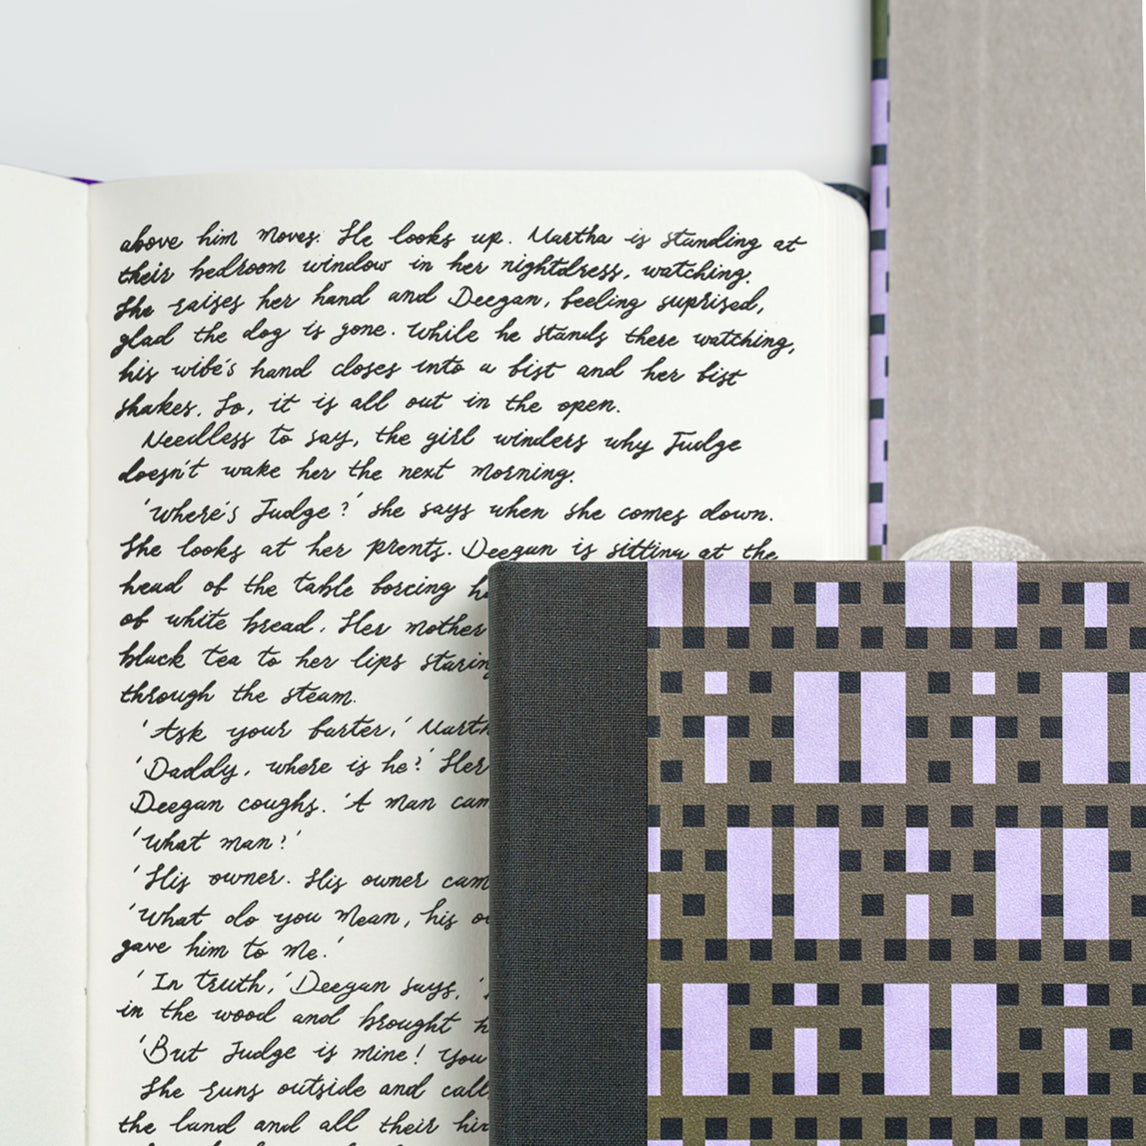 above him moves. He looks up. Martha is standing at
their bedroom window in her nightdress, watching.
She raises her hand and Deegan, feeling suprised,
glad the dog is gone. While he stands there watching,
his wife's hand closes into a fist and her fist
shakes. So, it is all out in the open.
Needless to say, the girl winders why Judge
doesn't wake her the next morning.
'Where's Judge?' she says when she comes down.
She looks at her prents. Deegan is sitting at the
head of the table forcing
of white bread. Her mother
black tea to her lips
through the steam.
'Ask your farter,'
'Daddy, where is he?' Her
Deegan coughs. 'A man
'What man?'
'His owner. His owner
'What do you mean, his
gave him to me.'
'In truth,' Deegan says, '
in the wood and brought
'But Judge is mine! You
She runs outside and
the land and all their